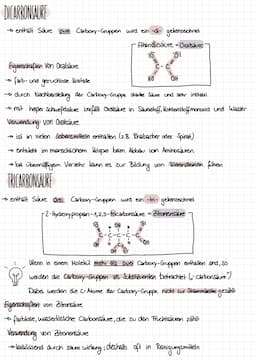 DICARBONSÄURE
→ enthält Säure zwei Carboxy-Gruppen wird ein -di- gekennzeichnet
Ethandisäure = Oxalsäure
Eigenschaften von Oxalsäure
→ farb- und geruchlose Kristalle
→ durch Nachbarstellung der Carboxy-Gruppe starke Säure und sehr instabil
→ mit Schwefelsäure zerfällt Oxalsäure in Kohlenstoffmonoxid und Wasser
Verwendung von Oxalsäure
→ ist in vielen Lebensmitteln enthalten (z.B. Rhabarber oder Spinat)
→ entsteht im menschlichen Körper beim Abbau von Aminosäuren
→ bei übermäßigem Verzehr kann es zur Bildung von Nierensteinen führen
TRICARBONSÄURE
→ enthält Säure drei Carboxy-Gruppen wird ein -tri- gekennzeichnet
2-Hydroxypropan-1,2,3-tricarbonsäure = Zitronensäure
! Wenn in einem Molekül mehr als zwei Carboxy-Gruppen enthalten sind, so
werden die Carboxy-Gruppen als Substituenten betrachtet („-carbonsäure")
Dabei werden die C-Atome der Carboxy-Gruppe nicht zur Stammkette gezählt
Eigenschaften von Zitronensäure
→ farblose, wasserlösliche Carbonsäure, die zu den Fruchtsäuren zählt
Verwendung von Zitronensäure
→ kalklösend durch saure Wirkung, deshalb oft in Reinigungsmitteln